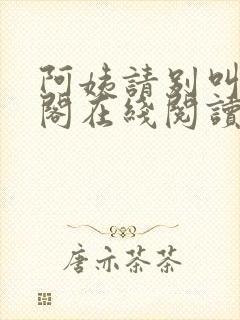 阿姨請別叫
閣在綫閱讀
唐亦茶茶